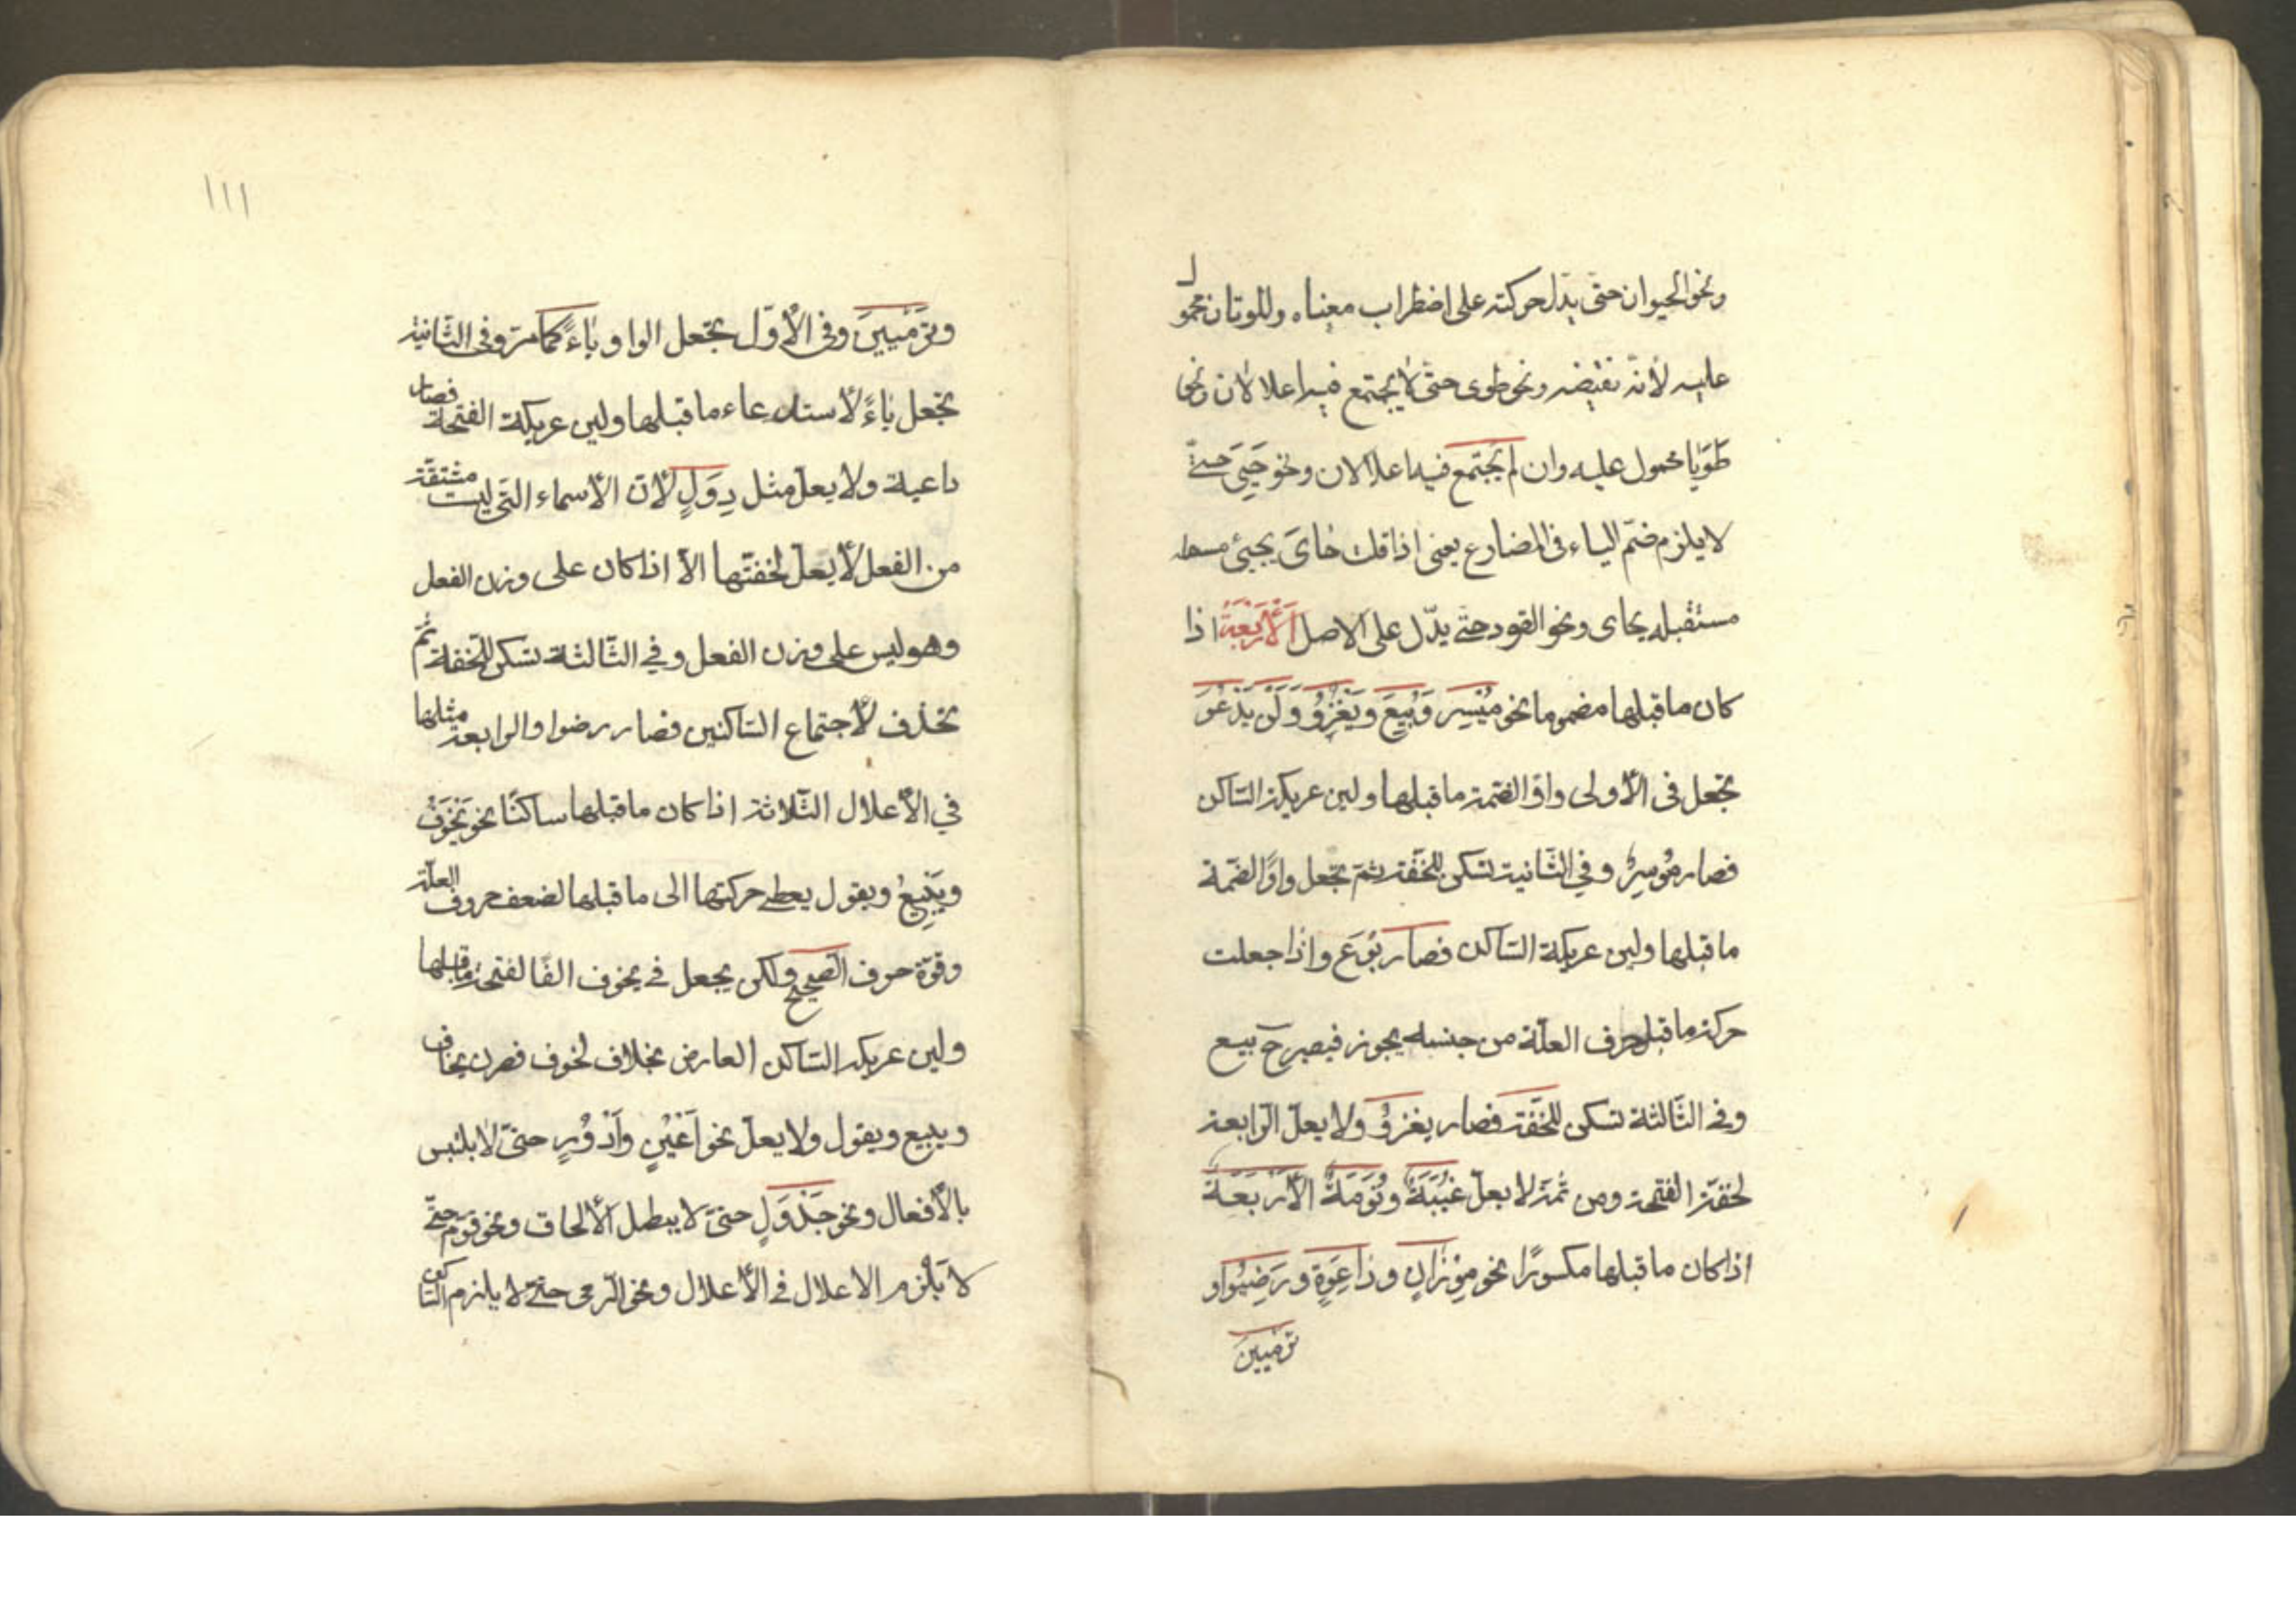 ونحو الحيوان حتى يدل حركته على اضطراب معناه والموتان محمول
عليه لأنه نقيضه ونحو طوى حتى لا يجتمع فيه اعلالان ونحو
طَوَيَا محمول عليه وان لم يجتمع فيه اعلالان ونحو حَيِيَ حتى
لا يلزم ضم الياء فى المضارع يعنى اذا قلت حَاىَ يجيئ
مستقبله يحاى ونحو القود حتى يدل على الاصل اَلْأَرْبَعَةُ اذا
كان ما قبلها مضموما نحو مُيْسِر وَبُيِعَ ويَغْزُوُ وَلَنْ يَدْعُوَ
تجعل فى الأولى واوا لضمة ما قبلها ولين عريكة السّاكن
فصار مُوسِرٌ وفي الثّانية تسكن للخفّة ثمّ تجعل واوًا لضمّة
ما قبلها ولين عريكة السّاكن فصار بُوعَ واذا جعلت
حركة ما قبل حرف العلّة من جنسه يجوز فيصير ح بيع
وفى الثّالثة تسكن للخفّة فصار يغزُوْ ولا يعلّ الرّابعة
لخفّة الفتحة ومن ثمّة لا يعلّ غُيُبَةٌ ونُوَمَةٌ الأرْبَعَةُ
اذا كان ما قبلها مكسورًا نحو مِوْزَانٍ ودَاعِوَةٍ ورَضِيُوا و
ترميين
١١١
وتَرْمِيِينَ وفى الأوّل تجعل الواو ياءً كما مرّ وفى الثّانية
تجعل ياءً لأستدعاء ما قبلها ولين عريكة الفتحة فصار
داعية ولا يعلّ مثل دِوَلٍ لأنّ الأسماء التّى ليست مشتقّة
من الفعل لأ يعلّ لخفّتها الاّ اذا كان على وزن الفعل
وهو ليس على وزن الفعل وفي الثّالثة تسكن للخفة ثمّ
تحذف لأجتماع السّاكنين فصار رضوا والرابعة مثلها
في الأعلال الثّلاثة اذا كان ما قبلها ساكنًا نحو يَخْوَفُ
ويَبْيِعُ ويقول يعطى حركتها الى ما قبلها لضعف حروف العلّة
وقوّة حرف الصحيح ولكن يجعل في يخوف الفًا لفتحة ما قبلها
ولين عريكة السّاكن العارض بخلاف لخوف فصرن يخاف
ويبيع ويقول ولا يعلّ نحو اَعْيُنٍ وأدْوُرٍ حتىّ لا يلتبس
بالأفعال ونحو جَدْوَلٍ حتىّ لا يبطل الألحاق ونحو قوم حتّى
لا يَلْزم الاعلال فى الأعلال ونحو الرّمى حتّى لا يلزم السّاكن